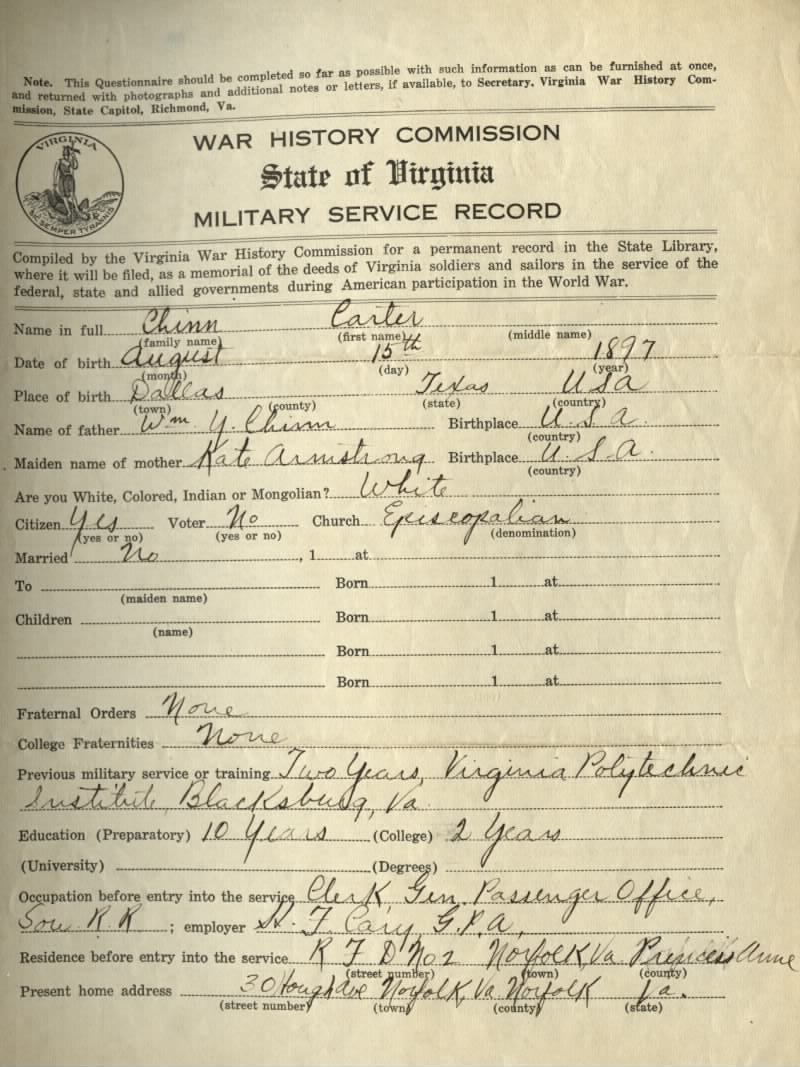 Note. This Questionnaire should be completed so far as possible with such information as can be furnished at once,
and returned with photographs and additional notes or letters, if available, to Secretary. Virginia War History Com-
mission, State Capitol, Richmond, Va.
VIRGINIA
SIC SEMPER TYRANNIS
WAR HISTORY COMMISSION
State of Virginia
MILITARY SERVICE RECORD
Compiled by the Virginia War History Commission for a permanent record in the State Library,
where it will be filed, as a memorial of the deeds of Virginia soldiers and sailors in the service of the
federal, state and allied governments during American participation in the World War.
Name in full Chinn Carter
(family name) (first name) (middle name)
Date of birth August 15th 1897
(month) (day) (year)
Place of birth Dallas Texas USA
(town) (county) (state) (country)
Name of father Wm Y. Chinn Birthplace U.S.A.
(country)
Maiden name of mother Kate Armstrong Birthplace U.S.A.
(country)
Are you White, Colored, Indian or Mongolian? White
Citizen Yes Voter No Church Episcopalian
(yes or no) (yes or no) (denomination)
Married No, 1 at
To Born 1 at
(maiden name)
Children Born 1 at
(name)
Born 1 at
Born 1 at
Fraternal Orders None
College Fraternities None
Previous military service or training Two Years, Virginia Polytechnic
Institute, Blacksburg, Va
Education (Preparatory) 10 Years (College) 2 Years
(University) (Degrees)
Occupation before entry into the service Clerk, Gen. Passenger Office,
Sou R R ; employer F. Cary, G.P.A,
Residence before entry into the service R F D No 2 Norfolk, Va Princess Anne
(street number) (town) (county)
Present home address 30 Ave Norfolk, Va. Norfolk Va.
(street number) (town) (county) (state)